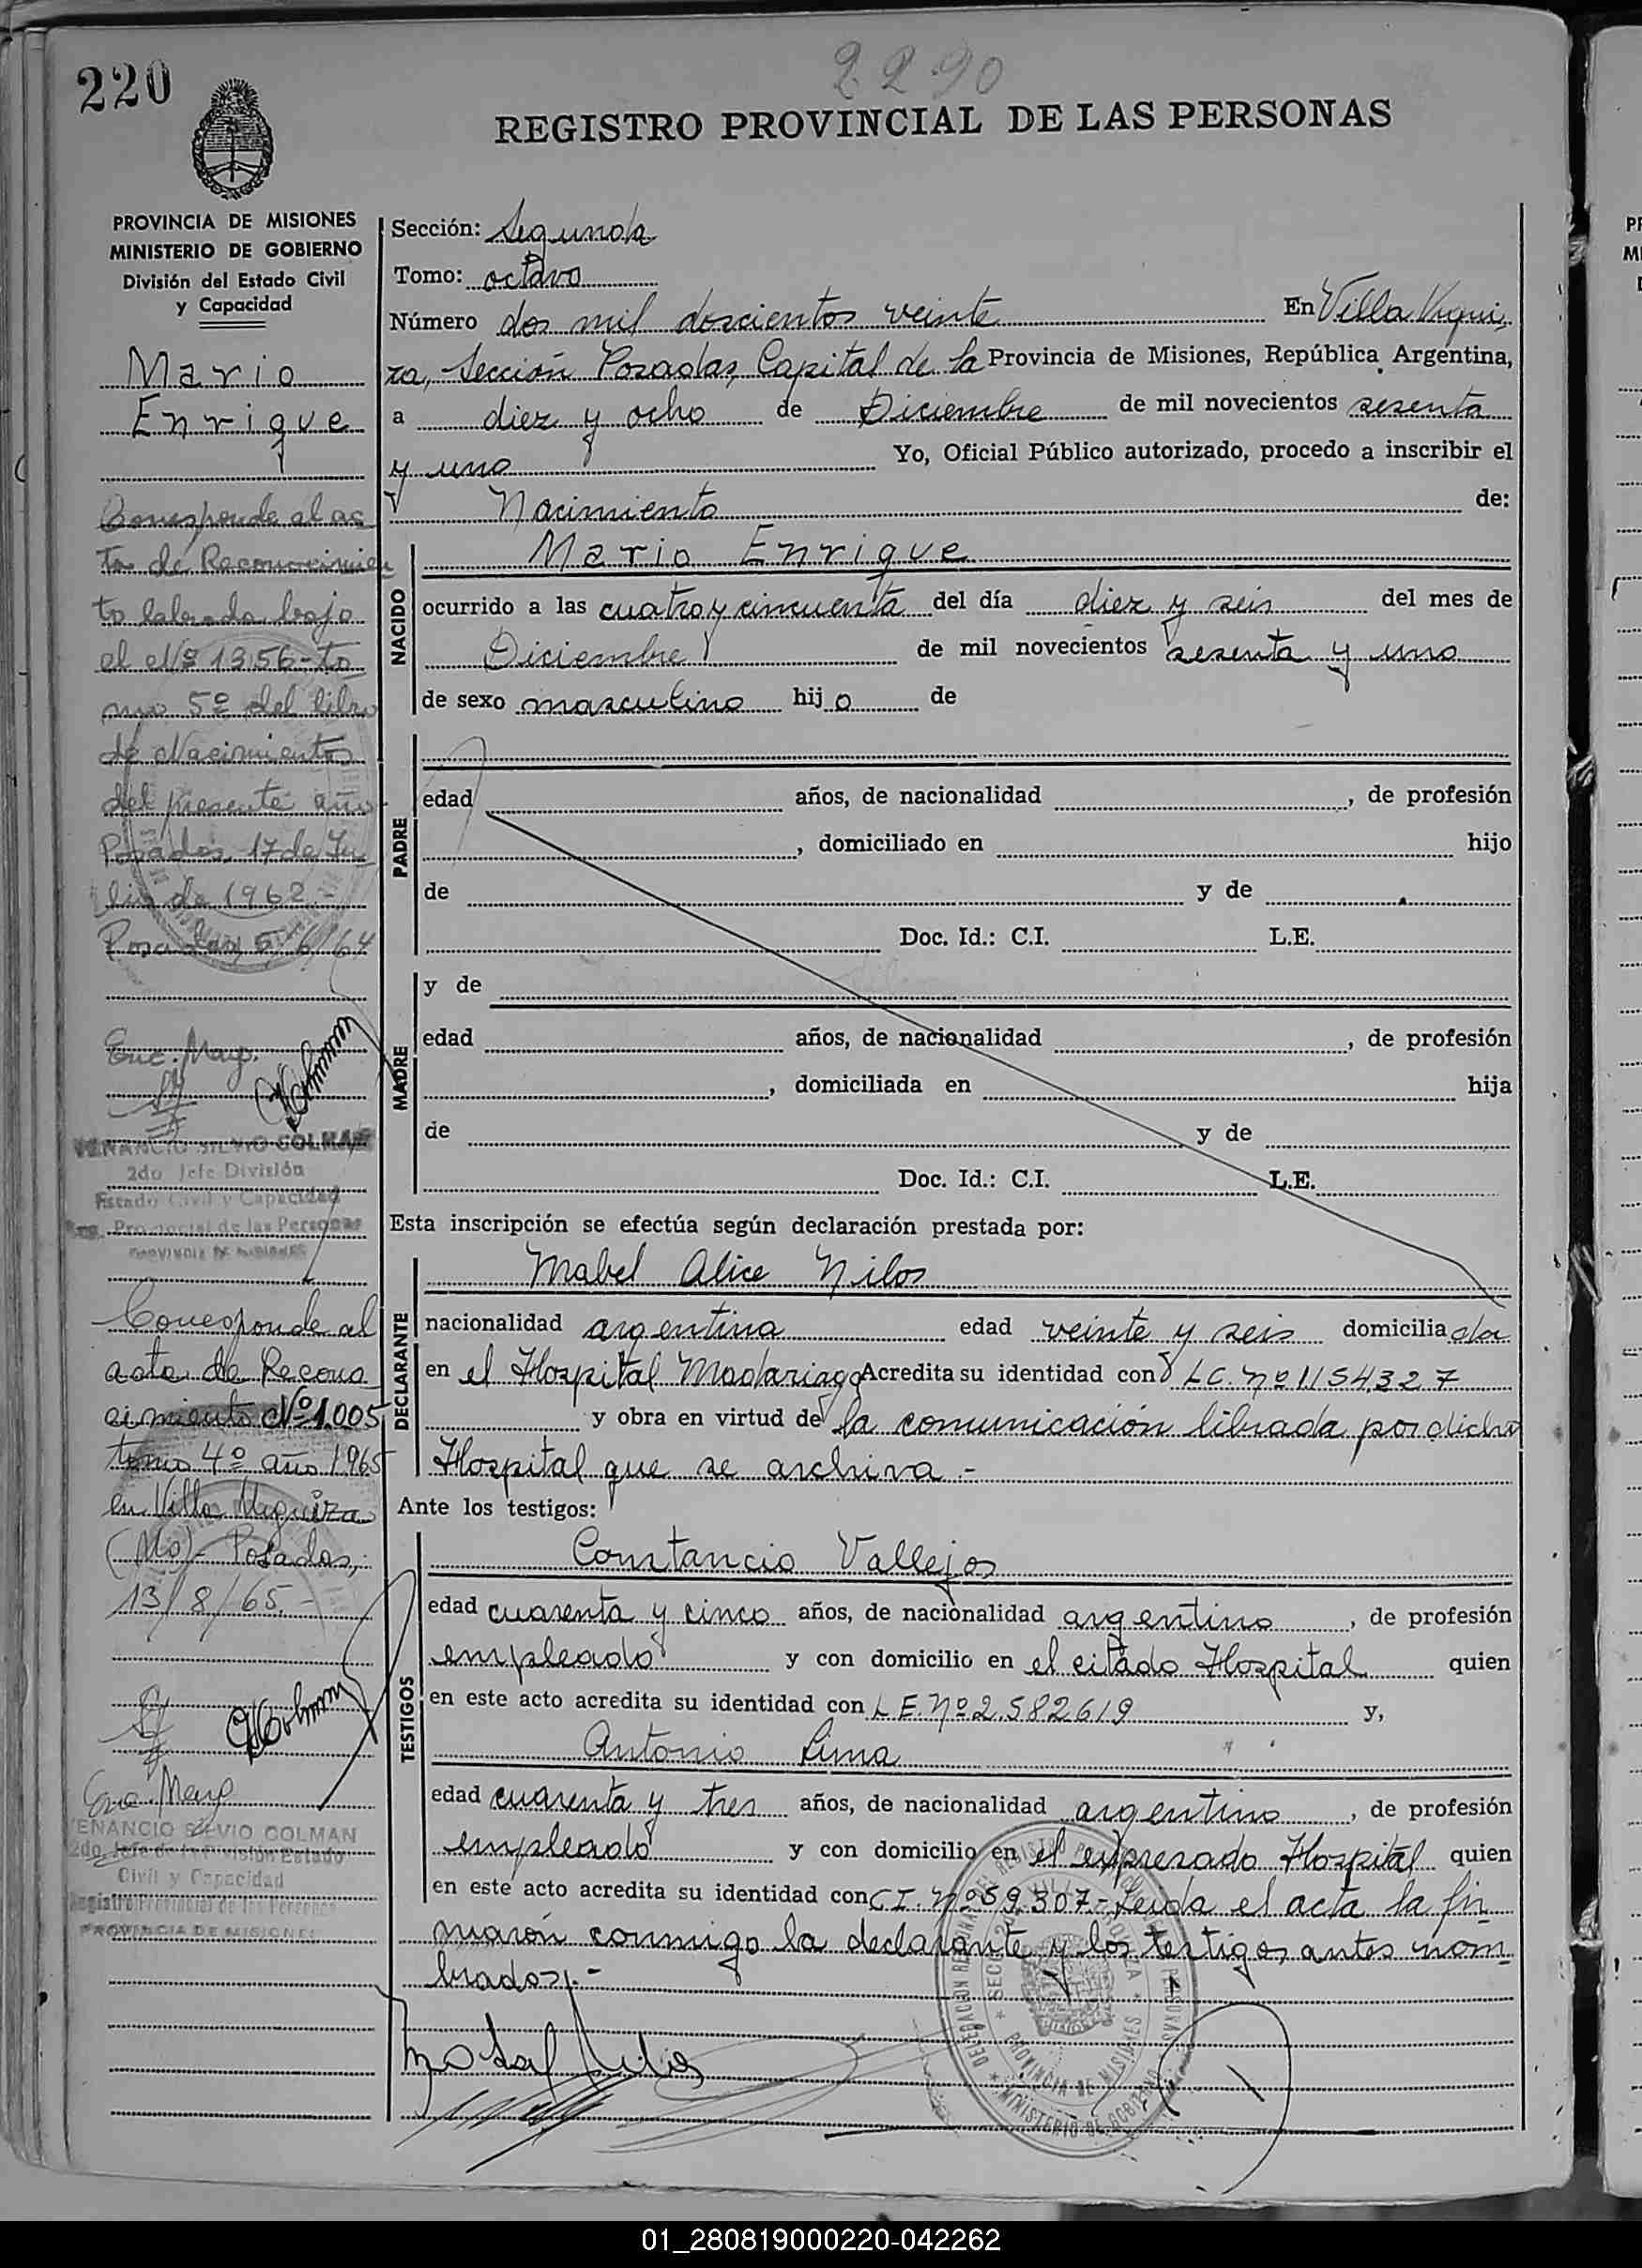 220
2290
REGISTRO PROVINCIAL DE LAS PERSONAS
PROVINCIA DE MISIONES
MINISTERIO DE GOBIERNO
División del Estado Civil
y Capacidad
Mario
Enrique
Corresponde al ac
ta de Reconocimien
to labrada bajo
el Nº 1356-to
mo 5º del libro
de Nacimientos
del presente año
Posadas, 17 de Ju
lio de 1962.-
Posadas, 5/6/64
Enc. Mayo.
VENANCIO SILVIO COLMAN
2do Jefe División
Estado Civil y Capacidad
Reg. Provincial de las Personas
PROVINCIA DE MISIONES
Corresponde al
acta de Recono
cimiento Nº 1.005
tomo 4º año 1965
en Villa Urquiza
(Mo)- Posadas,
13/8/65.-
VENANCIO SILVIO COLMAN
2do. Jefe de la División Estado
Civil y Capacidad
Registro Provincial de las Personas
PROVINCIA DE MISIONES
Sección: Segunda
Tomo: octavo
Número dos mil doscientos veinte En Villa Urqui
za, Sección Posadas, Capital de la Provincia de Misiones, República Argentina,
a diez y ocho de Diciembre de mil novecientos sesenta
y uno Yo, Oficial Público autorizado, procedo a inscribir el
Nacimiento de:
NACIDO
Mario Enrique
ocurrido a las cuatro y cincuenta del día diez y seis del mes de
Diciembre de mil novecientos sesenta y uno
de sexo masculino hijo de
PADRE
edad años, de nacionalidad , de profesión
, domiciliado en hijo
de y de
Doc. Id.: C.I. L.E.
MADRE
y de
edad años, de nacionalidad , de profesión
, domiciliada en hija
de y de
Doc. Id.: C.I. L.E.
Esta inscripción se efectúa según declaración prestada por:
DECLARANTE
Mabel Alice Nilos
nacionalidad argentina edad veinte y seis domiciliada
en el Hospital Madariaga Acredita su identidad con LC. Nº 1154327
y obra en virtud de la comunicación librada por dicho
Hospital que se archiva.-
Ante los testigos:
TESTIGOS
Constancio Vallejos
edad cuarenta y cinco años, de nacionalidad argentino, de profesión
empleado y con domicilio en el citado Hospital quien
en este acto acredita su identidad con L E. Nº 2.582619 y,
Antonio Lima
edad cuarenta y tres años, de nacionalidad argentino, de profesión
empleado y con domicilio en el expresado Hospital quien
en este acto acredita su identidad con C I. Nº 59.307- Leida el acta la fir
maron conmigo la declarante y los testigos antes nom
brados.-
01_280819000220-042262